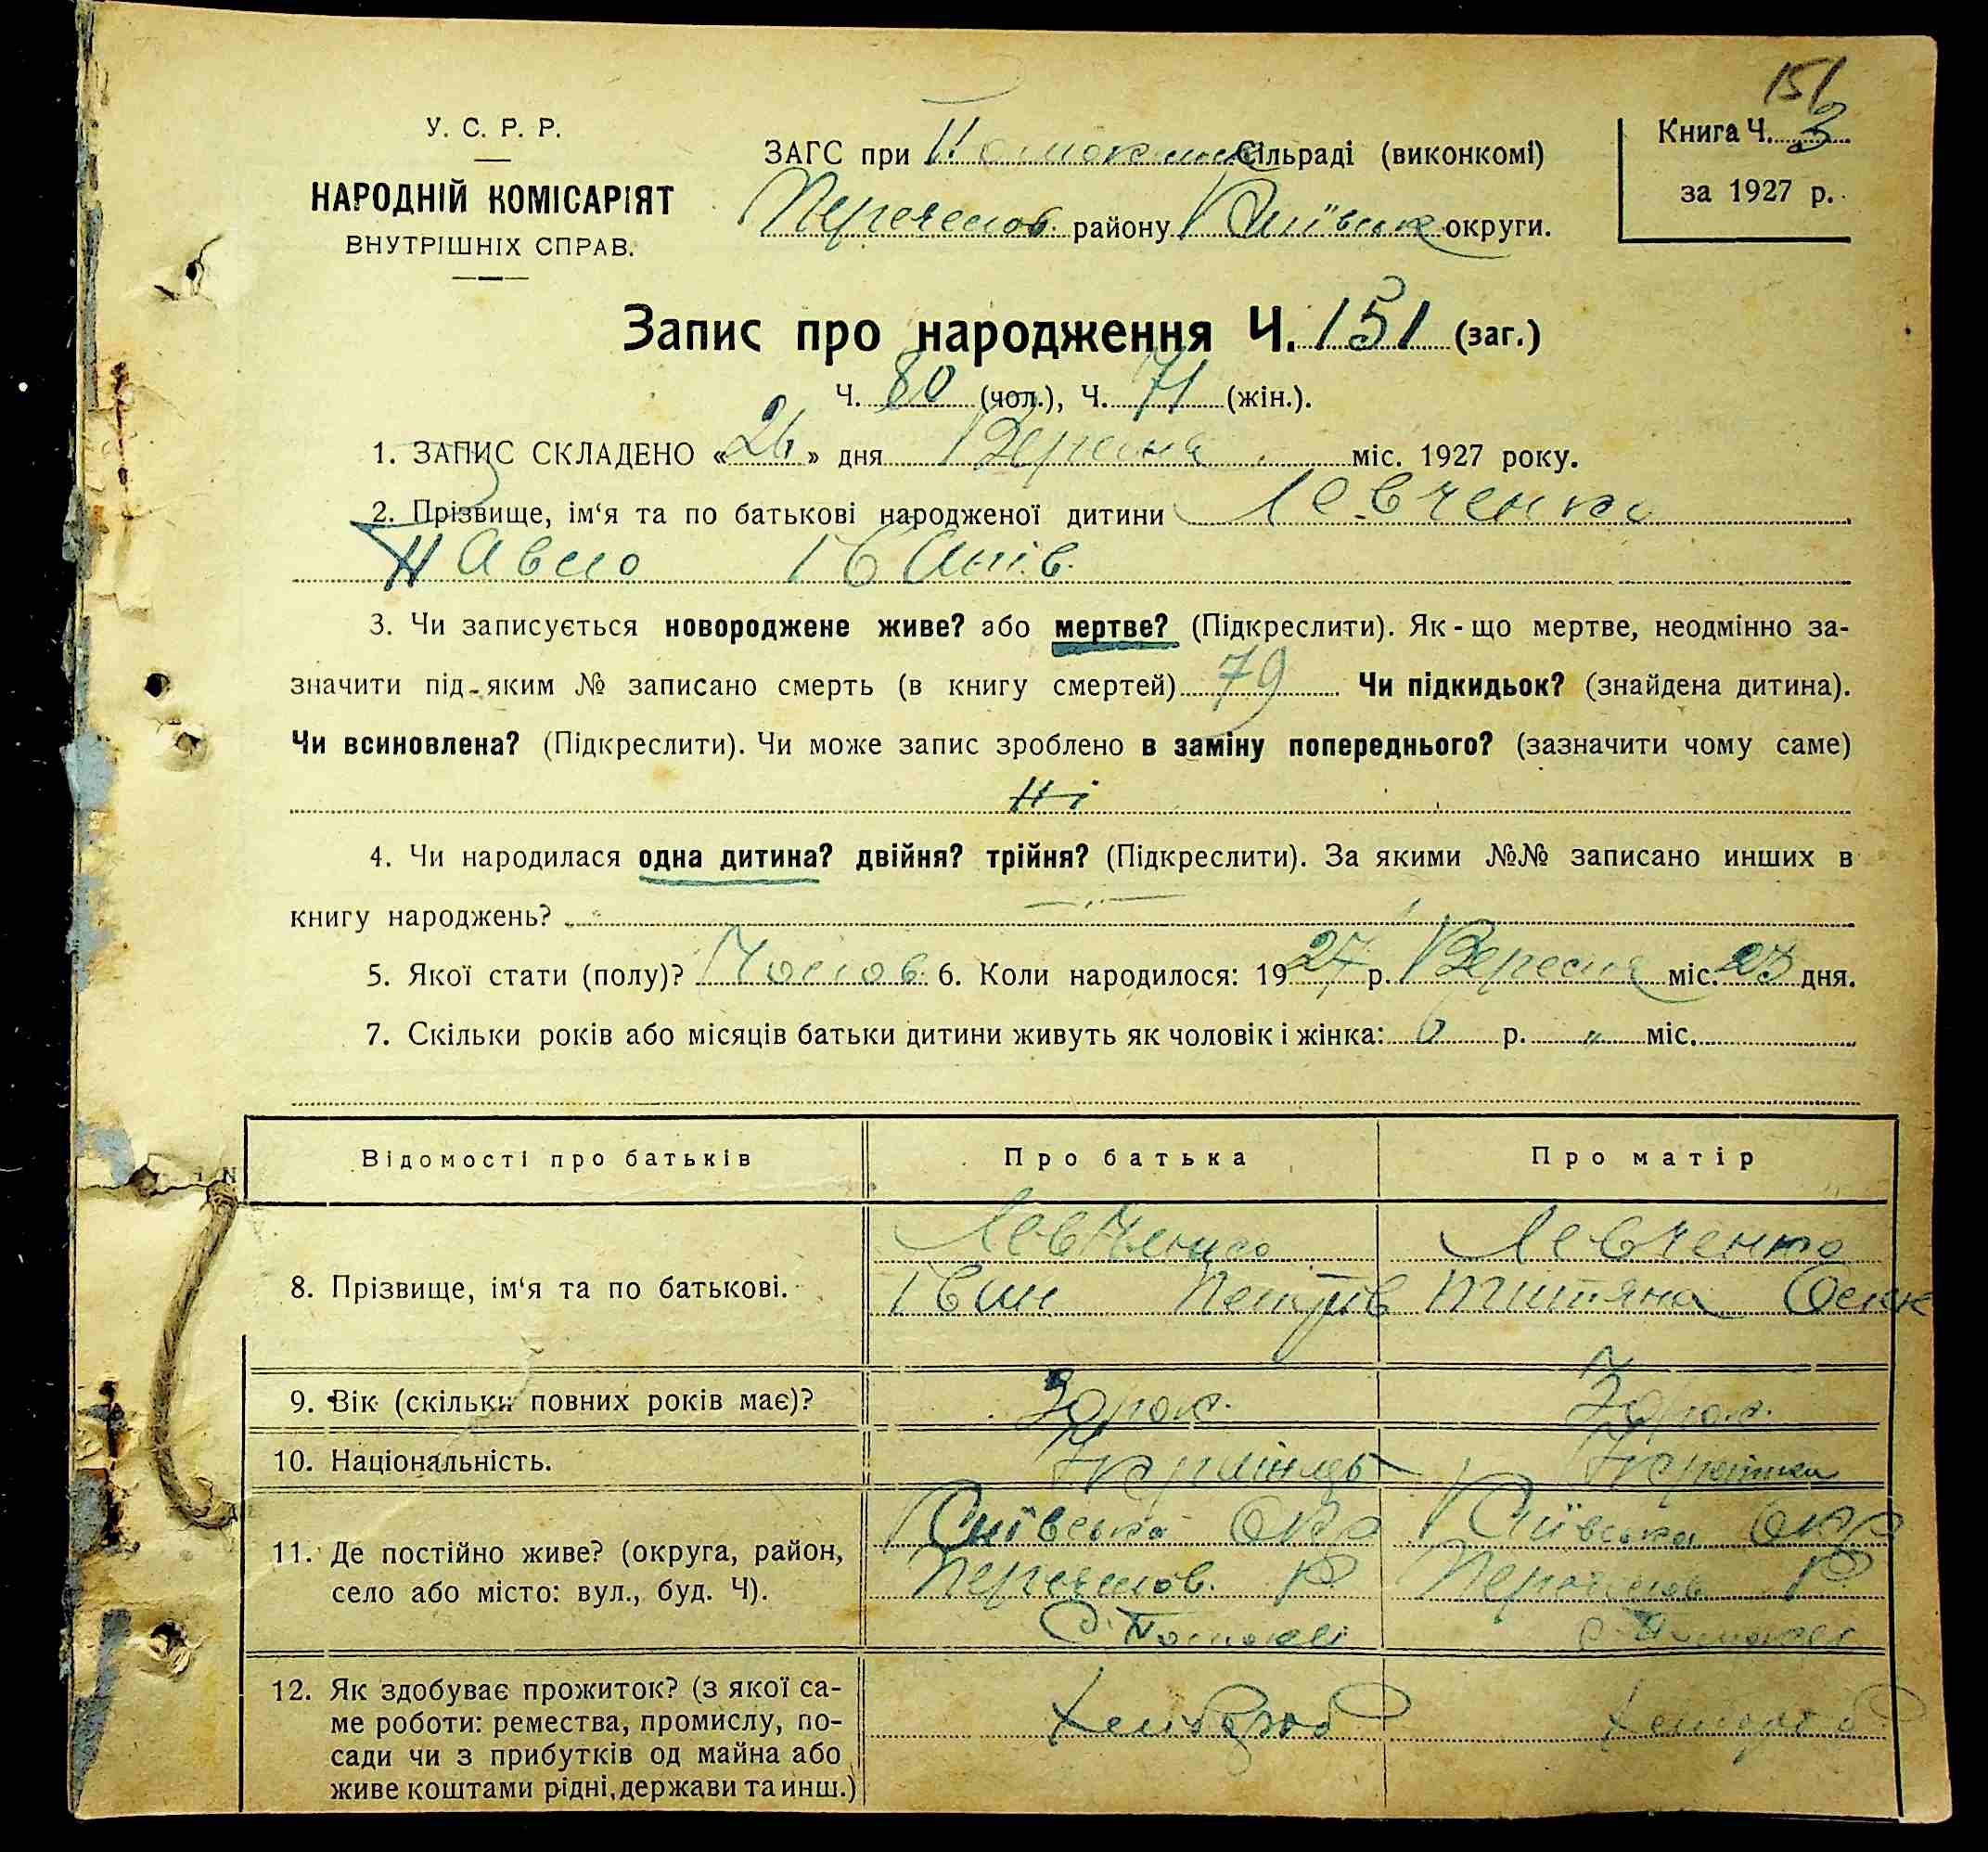 151
У. С. Р. Р.
НАРОДНІЙ КОМІСАРІЯТ
ВНУТРІШНІХ СПРАВ.
ЗАГС при Сільраді (виконкомі)
району Київськ округи.
Книга Ч. 3
за 1927 р.
Запис про народження Ч. 151 (заг.)
Ч. 80 (чол.), Ч. 71 (жін.).
1. ЗАПИС СКЛАДЕНО «26» дня Вересня міс. 1927 року.
2. Прізвище, ім‘я та по батькові народженої дитини Левченко
Павло Іванів.
3. Чи записується новороджене живе? або мертве? (Підкреслити). Як-що мертве, неодмінно за-
значити під-яким № записано смерть (в книгу смертей) 79 Чи підкидьок? (знайдена дитина).
Чи всиновлена? (Підкреслити). Чи може запис зроблено в заміну попереднього? (зазначити чому саме)
Ні
4. Чи народилася одна дитина? двійня? трійня? (Підкреслити). За якими №№ записано инших в
книгу народжень?
5. Якої стати (полу)? Чолов. 6. Коли народилося: 1927 р. Вересня міс. дня.
7. Скільки років або місяців батьки дитини живуть як чоловік і жінка: 6 р. „ міс.
Відомості про батьків Про батька Про матір
8. Прізвище, ім‘я та по батькові.
Левченко Левченко
Іван Петрів Титяна
9. Вік (скільки повних років має)? 30 рок. рок.
10. Національність. Українець Українка
11. Де постійно живе? (округа, район,
село або місто: вул., буд. Ч).
Київська Окр Київська Окр
12. Як здобуває прожиток? (з якої са-
ме роботи: ремества, промислу, по-
сади чи з прибутків од майна або
живе коштами рідні, держави та инш.)
Хлібороб Хлібороб